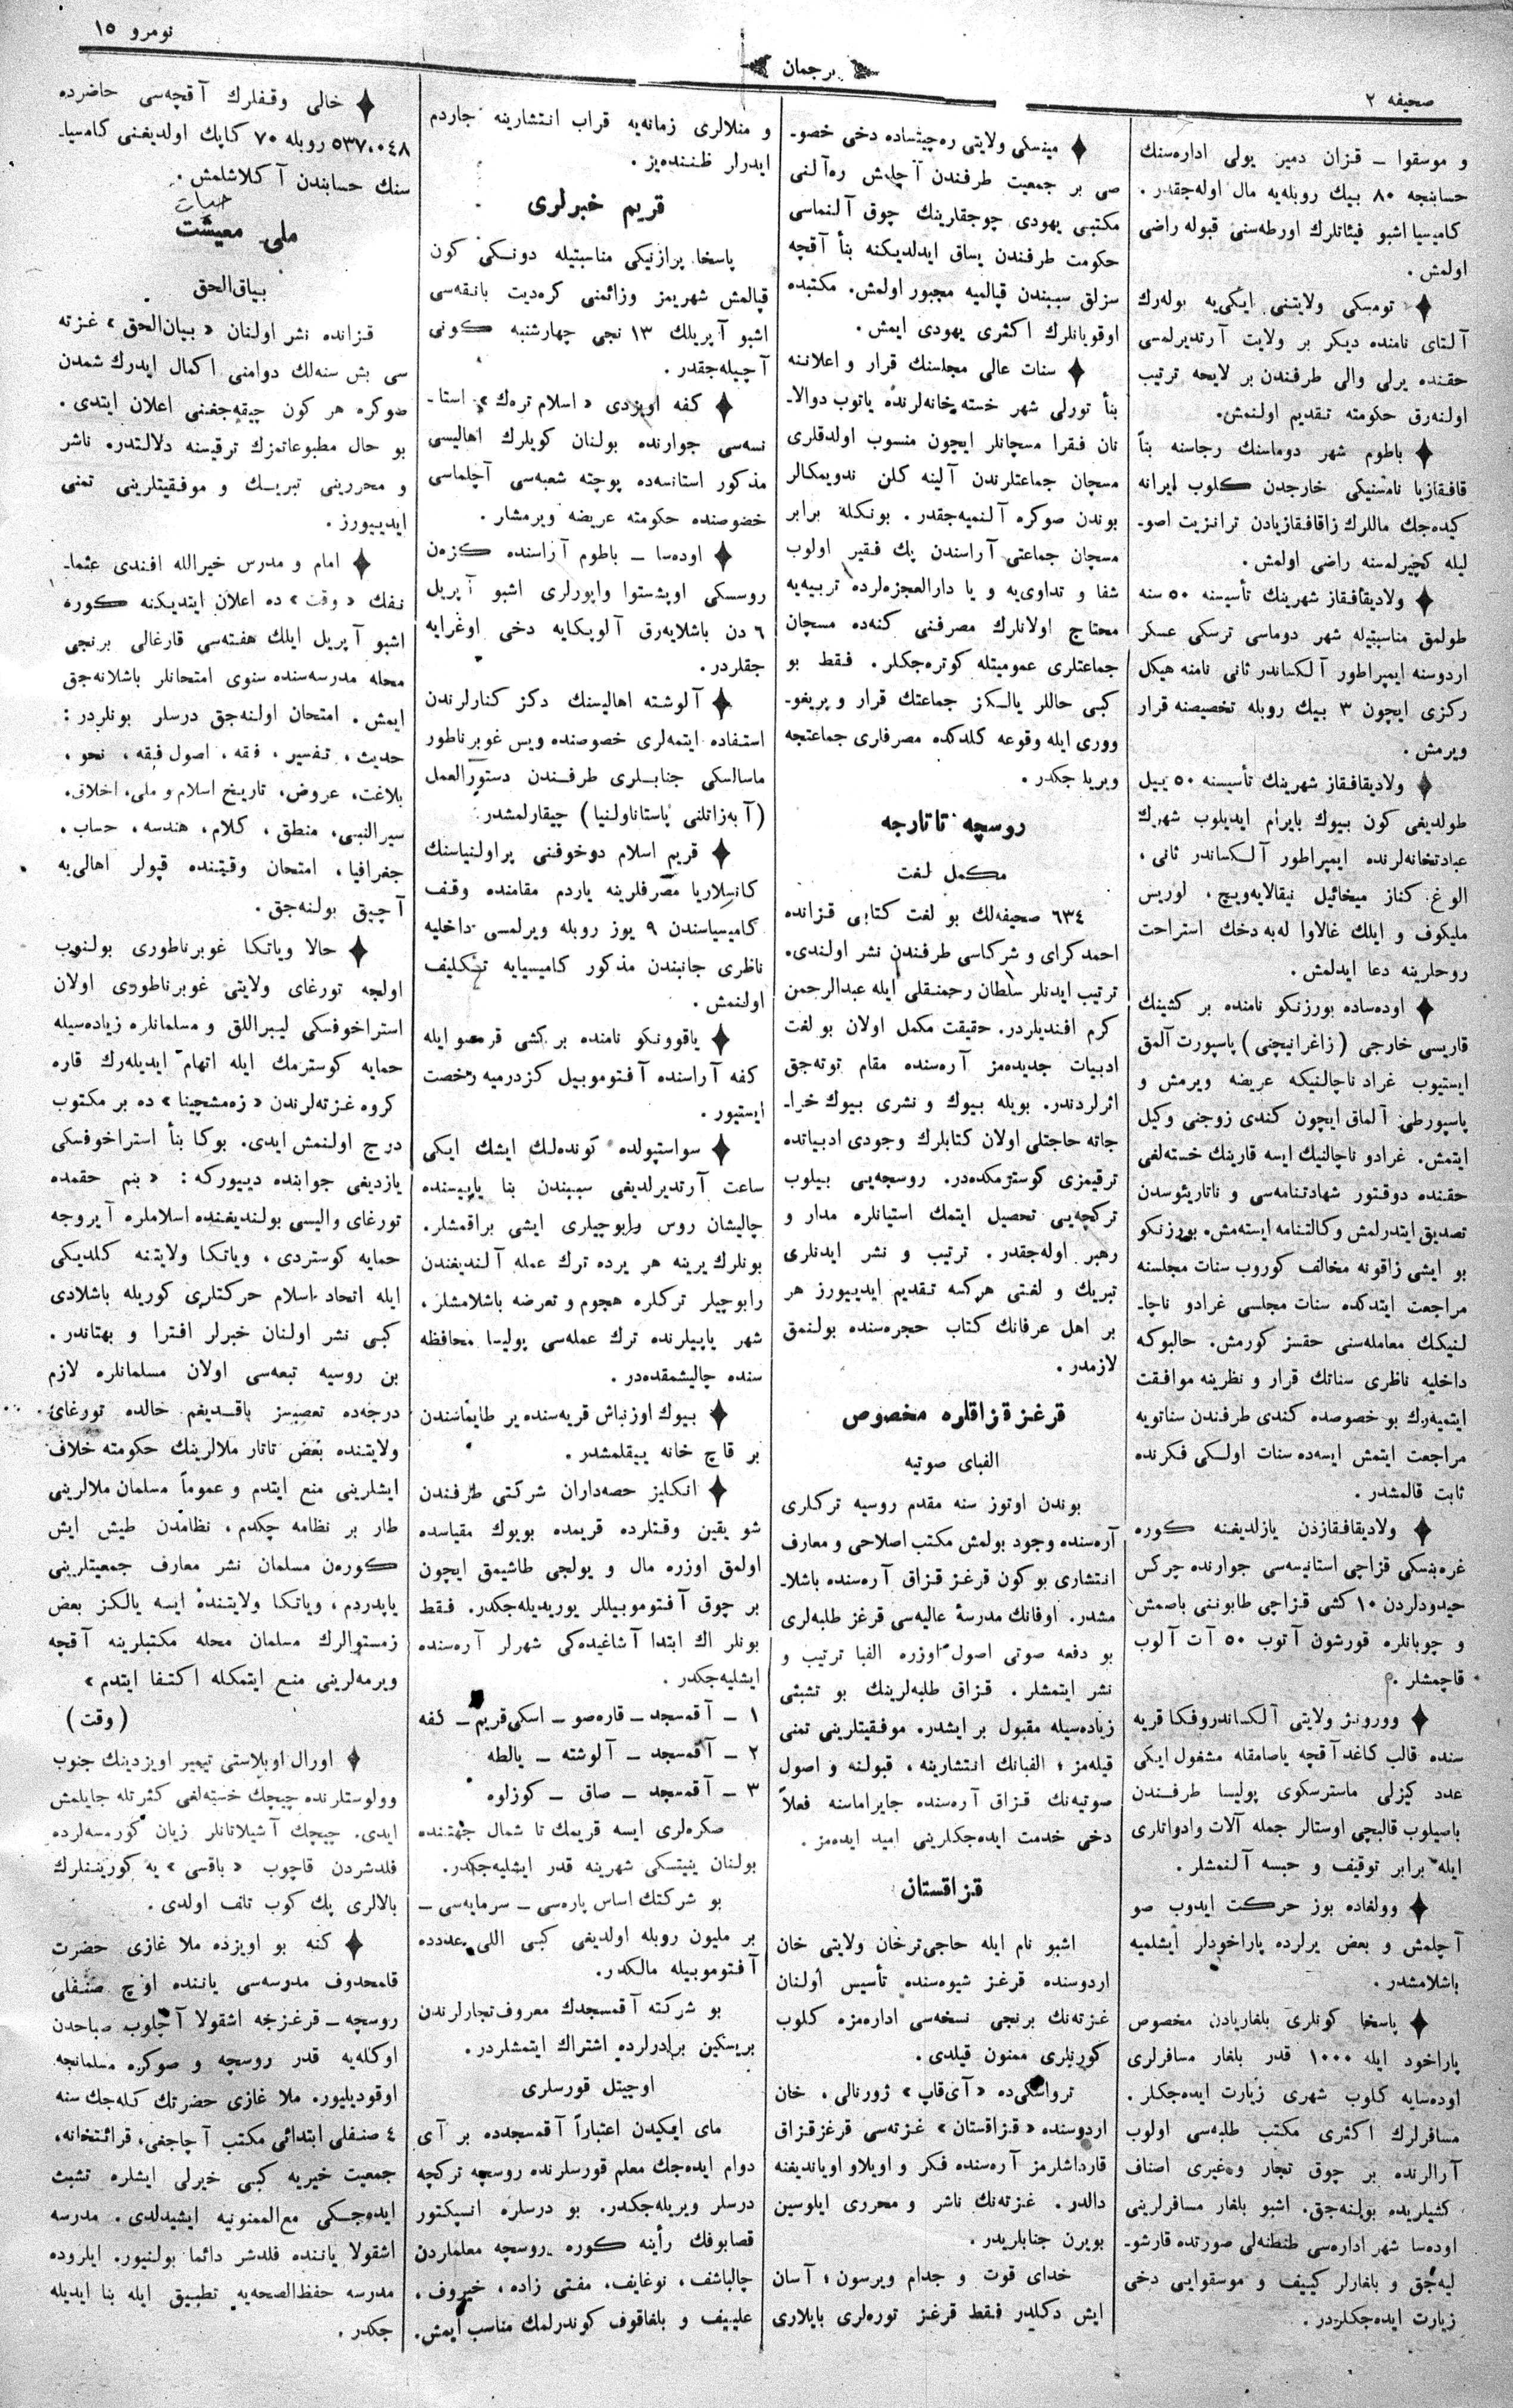 صحیفه ٢
ترجمان
نومرو ١٥
و موسقوا ــ قزان دمیر یولی اداره‌سنك
حسابنجه ٨٠ بیك روبله‌یه مال اوله‌جقدر .
كامیسیا اشبو فیئاتلرك اورطه‌سنی قبوله راضی
اولمش .
تومسكی ولایتنی ایكی‌یه بوله‌رك
آلتای نامنده دیكر بر ولایت آرتدیرلمسی
حقنده یرلی والی طرفندن بر لایحه ترتیب
اولنه‌رق حكومته تقدیم اولنمش.
باطوم شهر دوماسنك رجاسنه بناً
قافقازیا نامسنیكی خارجدن كلوب ایرانه
كیده‌جك ماللرك زاقافقازیادن ترانزیت اصو-
لیله كچیرلمسنه راضی اولمش .
ولادیقافقاز شهرینك تأسیسنه ٥٠ سنه
طولمق مناسبتیله شهر دوماسی ترسكی عسكر
اردوسنه ایمپراطور آلكساندر ثانی نامنه هیكل
ركزی ایچون ٣ بیك روبله تخصیصنه قرار
ویرمش .
ولادیقافقاز شهرینك تأسیسنه ٥٠ ییل
طولدیغی كون بیوك بایرام ایدیلوب شهرك
عبادتخانه‌لرنده ایمپراطور آلكساندر ثانی ،
الوغ كناز میخائیل نیقالایه‌ویچ ، لوریس
ملیكوف و ایلك غالاوا له‌به‌دخك استراحت
روحلرینه دعا ایدلمش .
اوده‌ساده بورزنكو نامنده بر كشینك
قاریسی خارجی (زاغرانیچنی) پاسپورت آلمق
ایستیوب غراد ناچالنیكه عریضه ویرمش و
پاسپورطی آلماق ایچون كندی زوجنی وكیل
ایتمش. غرادو ناچالنیك ایسه قارینك خسته‌لغی
حقنده دوقتور شهادتنامه‌سی و ناتاریئوسدن
تصدیق ایتدرلمش وكالتنامه ایسته‌مش. بورزنكو
بو ایشی زاقونه مخالف كوروب سنات مجلسنه
مراجعت ایتدكده سنات مجلسی غرادو ناچا-
لنیكك معامله‌سنی حقسز كورمش. حالبوكه
داخلیه ناظری سناتك قرار و نظرینه موافقت
ایتمیه‌رك بو خصوصده كندی طرفندن سناتویه
مراجعت ایتمش ایسه‌ده سنات اولكی فكرنده
ثابت قالمشدر .
ولادیقافقازدن یازلدیغنه كوره
غره‌بنسكی قزاچی استانیسه‌سی جوارنده چركس
حیدودلردن ١٠ كشی قزاچی طابوننی باصمش
و چوبانلره قورشون آتوب ٥٠ آت آلوب
قاچمشلر .
وورونژ ولایتی آلكساندروفكا قریه
سنده قالب كاغد آقچه یاصامقله مشغول ایكی
عدد كیزلی ماسترسكوی پولیسا طرفندن
باصیلوب قالبچی اوستالر جمله آلات وادواتلری
ایله برابر توقیف و حبسه آلنمشلر .
وولغاده بوز حركت ایدوب صو
آچلمش و بعض یرلرده پاراخودلر ایشلمیه
باشلامشدر .
پاسخا كونلری بلغاریادن مخصوص
پاراخود ایله ١٠٠٠ قدر بلغار مسافرلری
اوده‌سایه كلوب شهری زیارت ایده‌جكلر .
مسافرلرك اكثری مكتب طلبه‌سی اولوب
آرالرنده بر چوق تجار و غیری اصناف
كشیلریده بولنه‌جق. اشبو بلغار مسافرلرینی
اوده‌سا شهر اداره‌سی طنطنه‌لی صورتده قارشو-
لیه‌جق و بلغارلر كییف و موسقوایی دخی
زیارت ایده‌جكلردر .
مینسكی ولایتی ره‌چیتساده دخی خصو-
صی بر جمعیت طرفندن آچلمش ره‌آلنی
مكتبی یهودی چوجقلرینك چوق آلنماسی
حكومت طرفندن یساق ایدلدیكنه بنأ آقچه
سزلق سببندن قپالمیه مجبور اولمش. مكتبده
اوقویانلرك اكثری یهودی ایمش.
سنات عالی مجلسنك قرار و اعلاننه
بنأ تورلی شهر خسته‌خانه‌لرنده یاتوب دوالا-
نان فقرا مسچانلر ایچون منسوب اولدقلری
مسچان جماعتلرندن آلینه كلن ندویمكالر
بوندن صوكره آلنمیه‌جقدر. بونكله برابر
مسچان جماعتی آراسندن پك فقیر اولوب
شفا و تداوی‌یه و یا دارالعجزه‌لرده تربیه‌یه
محتاج اولانلرك مصرفنی كنه‌ده مسچان
جماعتلری عمومیتله كوتره‌جكلر. فقط بو
كبی حاللر یالكز جماعتك قرار و پریغو-
ووری ایله وقوعه كلدكده مصرفلری جماعتجه
ویریله جكدر .
روسچه تاتارجه
مكمل لغت
٦٣٤ صحیفه‌لك بو لغت كتابی قزانده
احمد كرای و شركاسی طرفندن نشر اولندی.
ترتیب ایدنلر سلطان رحمنقلی ایله عبدالرحمن
كرم افندیلردر. حقیقت مكمل اولان بو لغت
ادبیات جدیده‌مز آره‌سنده مقام توته‌جق
اثرلردندر. بویله بیوك و نشری بیوك خرا-
جاته حاجتلی اولان كتابلرك وجودی ادبیاتده
ترقیمزی كوسترمكده‌در. روسچه‌یی بیلوب
تركچه‌یی تحصیل ایتمك استیانلره مدار و
رهبر اوله‌جقدر. ترتیب و نشر ایدنلری
تبریك و لغتی هركسه تقدیم ایدییورز هر
بر اهل عرفانك كتاب حجره‌سنده بولنمق
لازمدر .
قرغز قزاقلره مخصوص
الفبای صوتیه
بوندن اوتوز سنه مقدم روسیه تركلری
آره‌سنده وجود بولمش مكتب اصلاحی و معارف
انتشاری بو كون قرغز قزاق آره‌سنده باشلا-
مشدر. اوفانك مدرسهٔ عالیه‌سی قرغز طلبه‌لری
بو دفعه صوتی اصول اوزره الفبا ترتیب و
نشر ایتمشلر. قزاق طلبه‌لرینك بو تشبثی
زیاده‌سیله مقبول بر ایشدر. موفقیتلرینی تمنی
قیله‌مز ؛ الفبانك انتشارینه ، قبولنه و اصول
صوتیه‌نك قزاق آره‌سنده جایراماسنه فعلاً
دخی خدمت ایده‌جكلرینی امید ایده‌مز .
قزاقستان
اشبو نام ایله حاجی‌ترخان ولایتی خان
اردوسنده قرغز شیوه‌سنده تأسیس اولنان
غزته‌نك برنجی نسخه‌سی اداره‌مزه كلوب
كورنلری ممنون قیلدی.
ترواسكی‌ده «آی‌قاپ» ژورنالی ، خان
اردوسنده «قزاقستان» غزته‌سی قرغز قزاق
قارداشلرمز آره‌سنده فكر و اویلاو اویاندیغنه
دالدر. غزته‌نك ناشر و محرری ایلوسین
بویرن جنابلریدر.
خدای قوت و جدام ویرسون ؛ آسان
ایش دكلدر فقط قرغز توره‌لری بایلاری
و منلالری زمانه‌یه قراب انتشارینه جاردم
ایدرلر ظننده‌یز .
قریم خبرلری
پاسخا پرازنیكی مناسبتیله دونكی كون
قپالمش شهریمز وزائمنی كره‌دیت بانقه‌سی
اشبو آپریلك ١٣ نجی چهارشنبه كونی
آچیله‌جقدر .
كفه اویزدی «اسلام ترەك» استا-
نسه‌سی جوارنده بولنان كویلرك اهالیسی
مذكور استانسه‌ده پوچته شعبه‌سی آچلماسی
خصوصنده حكومته عریضه ویرمشلر .
اوده‌سا ــ باطوم آراسنده كزه‌ن
روسسكی اوبشستوا واپورلری اشبو آپریل
٦ دن باشلایه‌رق آلوپكایه دخی اوغرایه
جقلردر.
آلوشته اهالیسنك دكز كنارلرندن
استفاده ایتمه‌لری خصوصنده ویس غوبرناطور
ماسالسكی جنابلری طرفندن دستورالعمل
(آبه‌زاتلنی پاستاناولنیا) چیقارلمشدر.
قریم اسلام دوخوفنی پراولنیاسنك
كانسلاریا مصرفلرینه یاردم مقامنده وقف
كامیسیاسندن ٩ یوز روبله ویرلمسی داخلیه
ناظری جانبندن مذكور كامیسیایه تكلیف
اولنمش .
یاقوونكو نامنده بر كشی قره‌صو ایله
كفه آراسنده آفتوموبیل كزدرمیه رخصت
ایستیور .
سواستپولده كونده‌لك ایشك ایكی
ساعت آرتدیرلدیغی سببندن بنا یاپیسنده
چالیشان روس رابوچیلری ایشی براقمشلر.
بونلرك یرینه هر یرده ترك عمله آلندیغندن
رابوچیلر تركلره هجوم و تعرضه باشلامشلر.
شهر یاپیلرنده ترك عمله‌سی پولیسا محافظه
سنده چالیشمقده‌در .
بیوك اوزنباش قریه‌سنده یر طایماسندن
بر قاچ خانه ییقلمشدر .
انكلیز حصه‌داران شركتی طرفندن
شو یقین وقتلرده قریمده بویوك مقیاسده
اولمق اوزره مال و یولجی طاشیمق ایچون
بر چوق آفتوموبیللر یوریدیله‌جكدر. فقط
بونلر اك ابتدا آشاغیده‌كی شهرلر آره‌سنده
ایشلیه‌جكدر .
١ ــ آقمسجد ــ قاره‌صو ــ اسكی‌قریم ــ كفه
٢ ــ آقمسجد ــ آلوشته ــ یالطه
٣ ــ آقمسجد ــ صاق ــ كوزلوه
صكره‌لری ایسه قریمك تا شمال جهتنده
بولنان ینیتسكی شهرینه قدر ایشلیه‌جكدر.
بو شركتك اساس پاره‌سی ــ سرمایه‌سی ــ
بر ملیون روبله اولدیغی كبی اللی عددده
آفتوموبیله مالكدر.
بو شركته آقمسجدك معروف تجارلرندن
بریسكین برادرلرده اشتراك ایتمشلردر.
اوچیتل قورسلری
مای ایكیدن اعتباراً آقمسجدده بر آی
دوام ایده‌جك معلم قورسلرنده روسچه تركچه
درسلر ویریله‌جكدر. بو درسلره انسپكتور
قصابوفك رأینه كوره روسچه معلملردن
چالباشف ، نوغایف ، مفتی زاده ، خیروف ،
علییف و بلغاقوف كوندرلمك مناسب ایمش.
خالی وقفلرك آقچه‌سی حاضرده
٥٣٧٠٠٤٨ روبله ٧٠ كاپك اولدیغنی كامسیا-
سنك حسابندن آكلاشلمش .
حیات
ملی معیشت
بیاق‌الحق
قزانده نشر اولنان «بیان‌الحق» غزته
سی بش سنه‌لك دوامنی اكمال ایدرك شمدن
صوكره هر كون چیقه‌جغنی اعلان ایتدی.
بو حال مطبوعاتمزك ترقیسنه دلالتدر. ناشر
و محررینی تبریك و موفقیتلرینی تمنی
ایدییورز .
امام و مدرس خیرالله افندی عثما-
نفك «وقت» ده اعلان ایتدیكنه كوره
اشبو آپریل ایلك هفته‌سی قارغالی برنجی
محله مدرسه‌سنده سنوی امتحانلر باشلانه‌جق
ایمش. امتحان اولنه‌جق درسلر بونلردر :
حدیث ، تفسیر ، فقه ، اصول فقه ، نحو ،
بلاغت، عروض، تاریخ اسلام و ملی، اخلاق،
سیرالنبی، منطق ، كلام ، هندسه ، حساب ،
جغرافیا ، امتحان وقتنده قپولر اهالی‌یه
آچیق بولنه‌جق .
حالا ویاتكا غوبرناطوری بولنوب
اولجه تورغای ولایتی غوبرناطوری اولان
استراخوفسكی لیبراللق و مسلمانلره زیاده‌سیله
حمایه كوسترمك ایله اتهام ایدیله‌رك قاره
كروه غزته‌لرندن «زه‌مشچینا» ده بر مكتوب
درج اولنمش ایدی. بوكا بنأ استراخوفسكی
یازدیغی جوابنده دییوركه : «بنم حقمده
تورغای والیسی بولندیغنده اسلاملره آیروجه
حمایه كوستردی ، ویاتكا ولایتنه كلدیكی
ایله اتحاد اسلام حركتلری كوریله باشلادی
كبی نشر اولنان خبرلر افترا و بهتاندر .
بن روسیه تبعه‌سی اولان مسلمانلره لازم
درجه‌ده تعصبسز باقدیغم حالده تورغای
ولایتنده بعض تاتار ملالرینك حكومته خلاف
ایشلرینی منع ایتدم و عموماً مسلمان ملالرینی
طار بر نظامه چكدم ، نظامدن طیش ایش
كوره‌ن مسلمان نشر معارف جمعیتلرینی
یاپدردم ، ویاتكا ولایتنده ایسه یالكز بعض
زمستوالرك مسلمان محله مكتبلرینه آقچه
ویرمه‌لرینی منع ایتمكله اكتفا ایتدم»
(وقت)
اورال اوبلاستی تیمیر اویزدینك جنوب
وولوستلرنده چیچك خسته‌لغی كثرتله جایلمش
ایدی. چیچك آشیلاتانلر زیان كورمسه‌لرده
فلدشردن قاچوب «باقسی» یه كورینـنلرك
بالالری پك كوب تلف اولدی .
كنه بو اویزده ملا غازی حضرت
قامحدوف مدرسه‌سی یاننده اوچ صنفلی
روسچه ــ قرغزچه اشقولا آچلوب صباحدن
اوكله‌یه قدر روسچه و صوكره مسلمانجه
اوقودیلیور. ملا غازی حضرتك كله‌جك سنه
٤ صنفلی ابتدائی مكتب آچاجغی، قرائتخانه،
جمعیت خیریه كبی خیرلی ایشلره تشبث
ایده‌جكی مع‌الممنونیه ایشیدلدی. مدرسه
اشقولا یاننده فلدشر دائما بولنیور. ایلروده
مدرسه حفظ‌الصحه‌یه تطبیق ایله بنا ایدیله
جكدر .